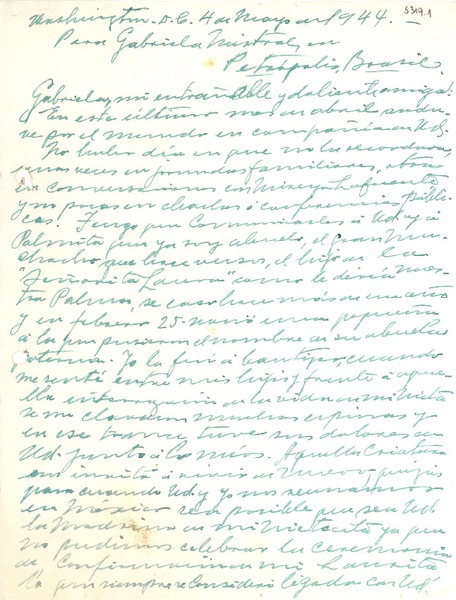 5319.1
Washington D.C. 4 de Mayo de 1944.
Para Gabriela Mistral, en
Petrópolis, Brasil.
Gabriela, mi entrañable y doliente amiga:
En este último mes de abril anduve
por el mundo en compañía de Ud.
No hubo día en que no la recordara,
unas veces en familiares, otras
en conversaciones con
y no pocas en charlas o conferencias públicas.
Tengo que comunicarles a Ud. y a
Palmita que ya soy abuelo, el gran muchacho
que hace versos, el hijo de la
"Señorita Laura" como le diría nuestra
Palma, se casó hace más de un año
y en febrero 25 nació una pequeña
a la que pusieron el nombre de su abuela
paterna. Yo la fui a bautizar, cuando
me senté entre mis hijos y frente a aquella
interrogación de la vida de mi nieta
se me clavaron muchas espinas y
en ese trance tuve sus dolores de
Ud. junto a los míos. Aquella criatura
me invitó a vivir de nuevo,
para cuando Ud. y yo nos reunamos
en México será posible que sea Ud.
la madrina de mi nietecita ya que
no pudimos celebrar la ceremonia
de Confirmación de mi Laurita
la que siempre se consideró ligada con Ud.